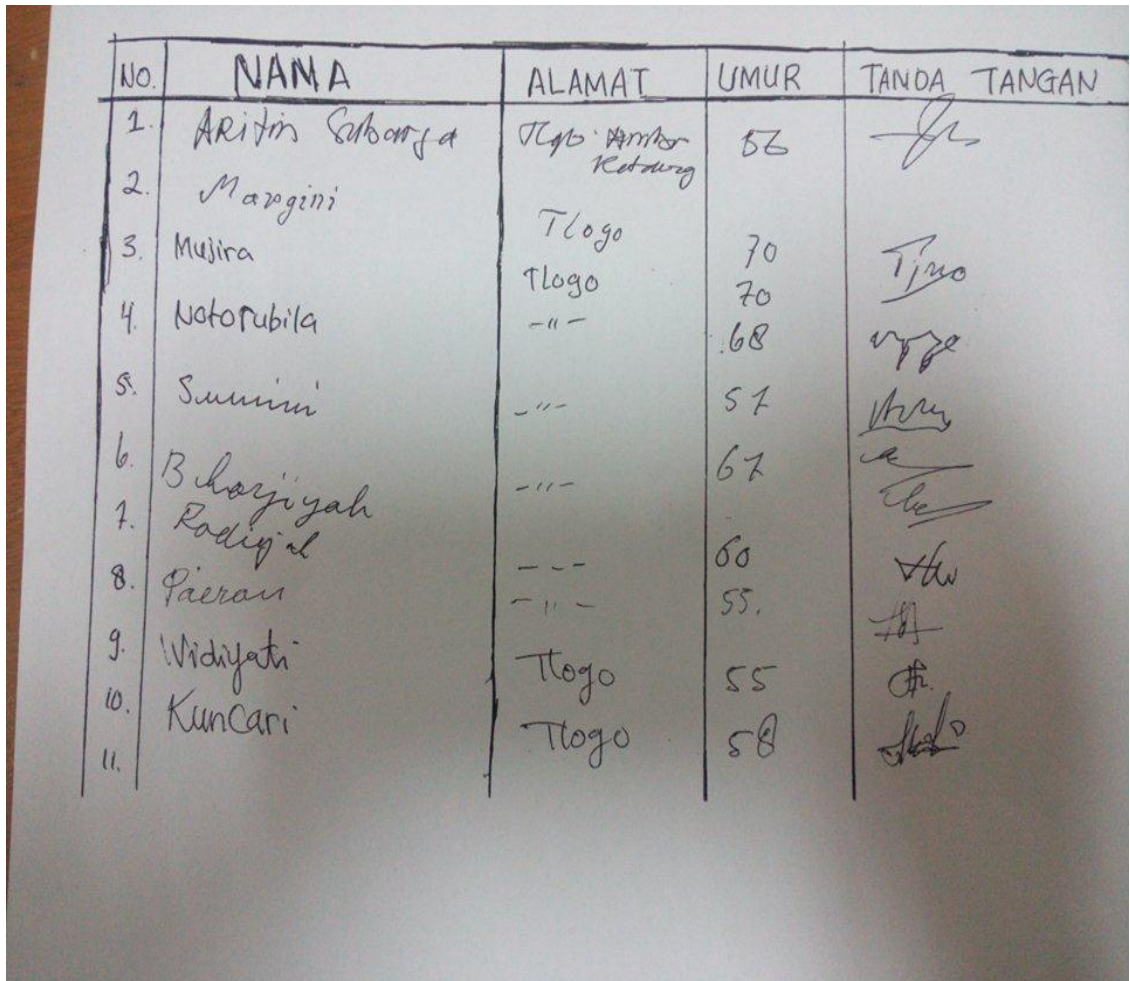 NO. NAMA ALAMAT UMUR TANDA TANGAN
1. ARifin Subarga 56
2. Margini Tlogo 70
3. Mujira Tlogo 70
4. Notorubila -"- 68
5. Sumini -"- 57
6. B harjiyah -"- 67
7. Radiyah --- 60
8. Paeran -"- 55.
9. Widiyati Tlogo 55
10. Kuncari Tlogo 58
11.